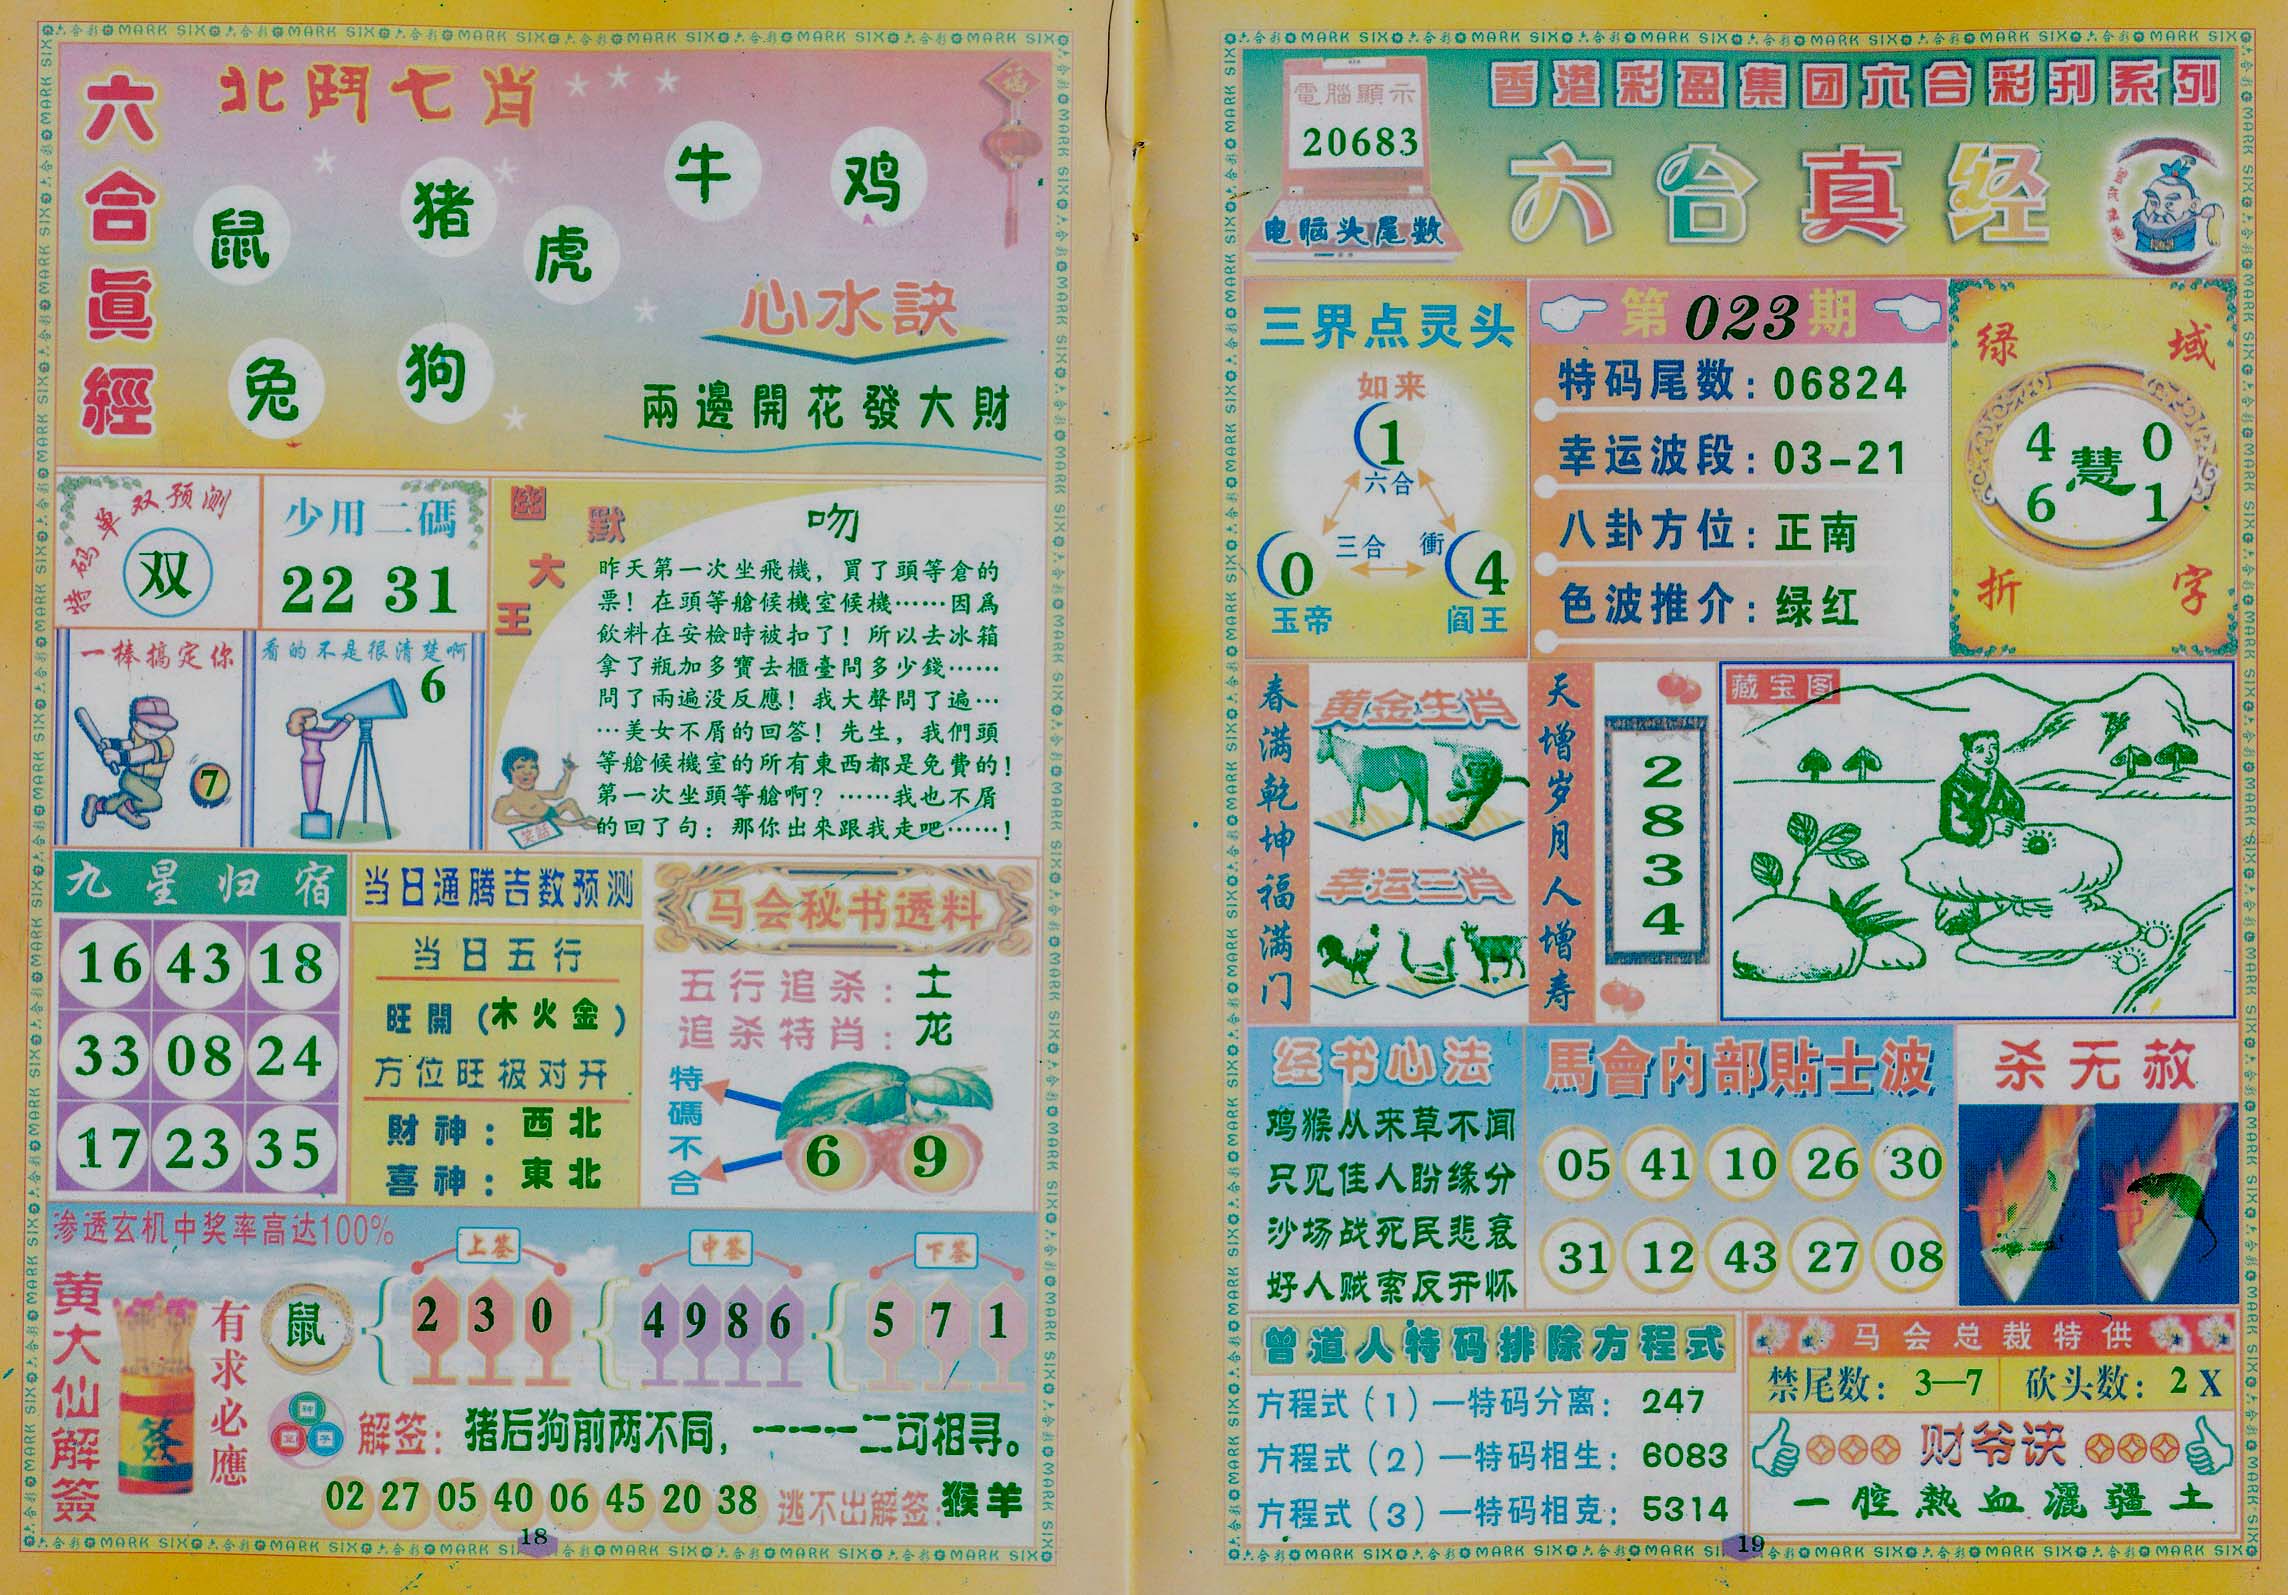 六合眞經
北鬥七肖
鼠
猪
虎
牛
鸡
兔
狗
心水訣
兩邊開花發大財
特码单双预测
双
少用二碼
22 31
一棒搞定你
7
看的不是很清楚啊
6
幽默大王
吻
昨天第一次坐飛機，買了頭等倉的
票！在頭等艙候機室候機……因爲
飲料在安檢時被扣了！所以去冰箱
拿了瓶加多寶去櫃臺問多少錢……
問了兩遍没反應！我大聲問了遍…
…美女不屑的回答！先生，我們頭
等艙候機室的所有東西都是免費的！
第一次坐頭等艙啊？……我也不屑
的回了句：那你出來跟我走吧……！
笑話
九星归宿
16 43 18
33 08 24
17 23 35
当日通腾吉数预测
当日五行
旺開（木火金）
方位旺极对开
財神：西北
喜神：東北
马会秘书透料
五行追杀：土
追杀特肖：龙
特碼不合
6 9
渗透玄机中奖率高达100%
黄大仙解簽
有求必應
鼠
上签
2 3 0
中签
4 9 8 6
下签
5 7 1
解签：猪后狗前两不同，一一一二可相寻。
02 27 05 40 06 45 20 38
逃不出解签：猴羊
18
電腦顯示
20683
电脑头尾数
香港彩盈集团六合彩刊系列
六合真经
三界点灵头
如来
1
六合
三合
衝
0
玉帝
4
阎王
第023期
特码尾数：06824
幸运波段：03-21
八卦方位：正南
色波推介：绿红
绿域折字
4 0
慧
6 1
春满乾坤福满门
黄金生肖
幸运三肖
天增岁月人增寿
2834
藏宝图
经书心法
鸡猴从来草不闻
只见佳人盼缘分
沙场战死民悲哀
好人贼索反开怀
馬會内部貼士波
05 41 10 26 30
31 12 43 27 08
杀无赦
曾道人特码排除方程式
方程式（1）—特码分离：247
方程式（2）—特码相生：6083
方程式（3）—特码相克：5314
马会总裁特供
禁尾数：3—7
砍头数：2X
财爷诀
一腔熱血灑疆土
19